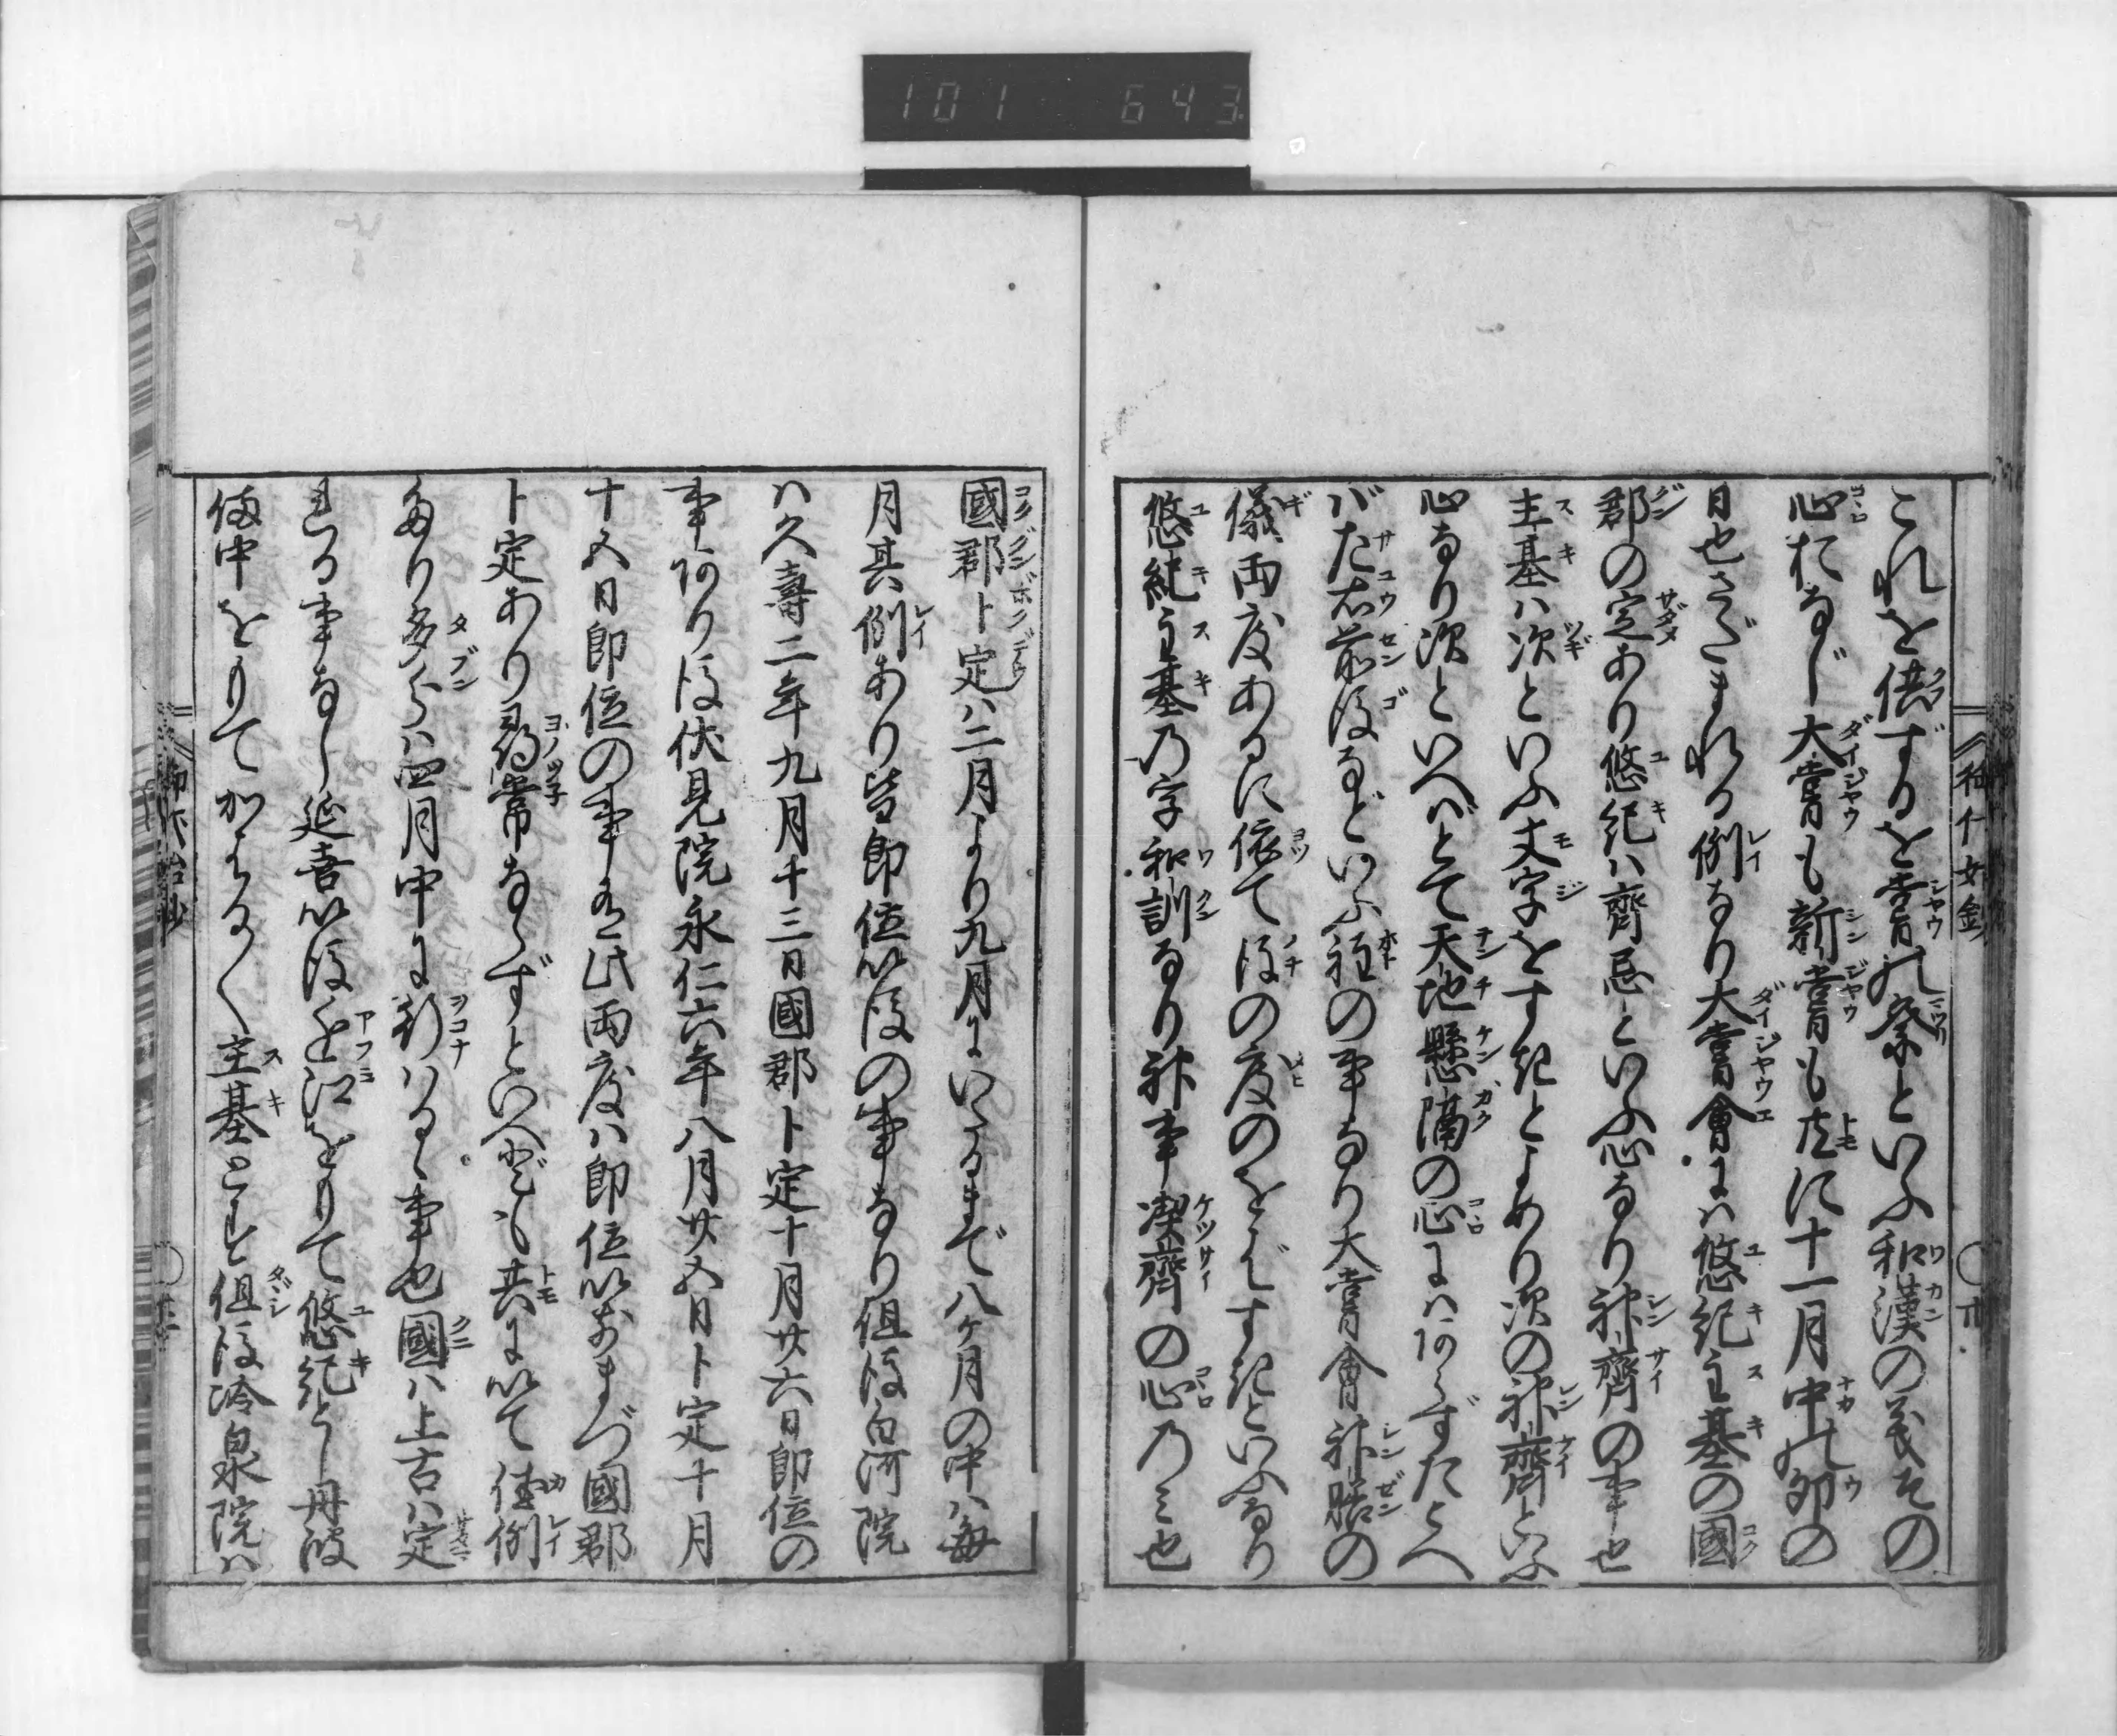 101 643
これを供ずるを嘗の祭といふ和漢の義その
心おなじ大嘗も新嘗も共に十一月中の卯の
日也さだまれる例なり大嘗會には悠紀主基の國
郡の定あり悠紀は齋忌といふ心なり神齋の事也
主基ハ次といふ文字をすきとよめり次の神齋といふ
心なり次といへばとて天地懸隔の心にはあらずたとへ
バ左右前後などいふ程の事なり大嘗會神膳の
儀両度あるに依て後の度のをばすきといふなり
悠紀主基の字和訓なり神事潔齋の心のミ也
國郡卜定ハ二月より九月にいたるまで八ケ月の中ハ毎
月其例あり皆即位以後の事なり但後白河院
ハ久壽二年九月十三日國郡卜定十月廿六日即位の
事あり後伏見院永仁六年八月廿五日卜定十月
十五日即位の事有此両度ハ即位以前まづ國郡
卜定あり尋常ならずといへども共に以て佳例
なり多分ハ四月中に行はるゝ事也國ハ上古ハ定
れる事なし延喜以後近江をもて悠紀とし丹波
備中をもてかはる〱主基とす但後冷泉院ハ